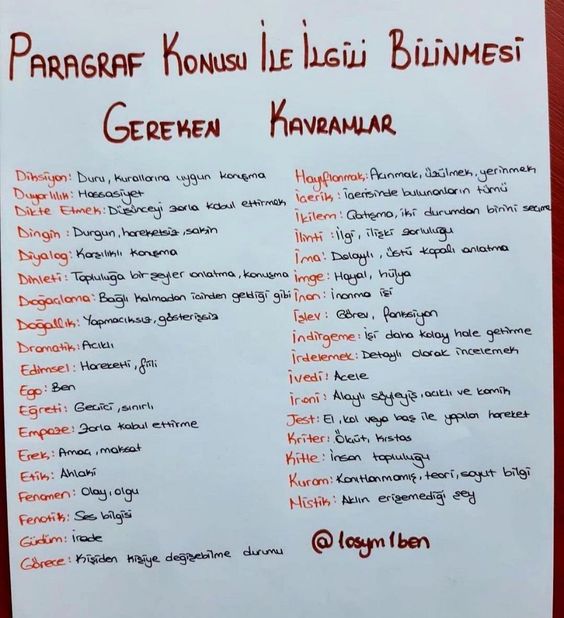 PARAGRAF KONUSU İLE İLGİLİ BİLİNMESİ
GEREKEN KAVRAMLAR
Diksiyon: Duru, kurallarına uygun konuşma
Duyarlılık: Hassasiyet
Dikte Etmek: Düşünceyi zorla kabul ettirmek
Dingin: Durgun, hareketsiz, sakin
Diyalog: Karşılıklı konuşma
Dinleti: Topluluğa bir şeyler anlatma, konuşma
Doğaçlama: Bağlı kalmadan içinden geldiği gibi
Doğallık: Yapmacıksız, gösterişsiz
Dramatik: Acıklı
Edimsel: Hareketli, fiili
Ego: Ben
Eğreti: Geçici, sınırlı
Empoze: Zorla kabul ettirme
Erek: Amaç, maksat
Etik: Ahlaki
Fenomen: Olay, olgu
Fenotik: Ses bilgisi
Güdüm: İrade
Görece: Kişiden kişiye değişebilme durumu
Hayıflanmak: Acınmak, üzülmek, yerinmek
İçerik: İçerisinde bulunanların tümü
İkilem: Çatışma, iki durumdan birini seçme
İlinti: İlgi, ilişki zorluluğu
İma: Dolaylı, üstü kapalı anlatma
İmge: Hayal, hülya
İnan: İnanma işi
İşlev: Görev, fonksiyon
İndirgeme: İşi daha kolay hale getirme
İrdelemek: Detaylı olarak incelemek
İvedi: Acele
İroni: Alaylı söyleyiş, acıklı ve komik
Jest: El, kol veya baş ile yapılan hareket
Kriter: Ölçüt, kıstas
Kitle: İnsan topluluğu
Kuram: Kanıtlanmamış, teori, soyut bilgi
Mistik: Aklın erişemediği şey
@1osym1ben